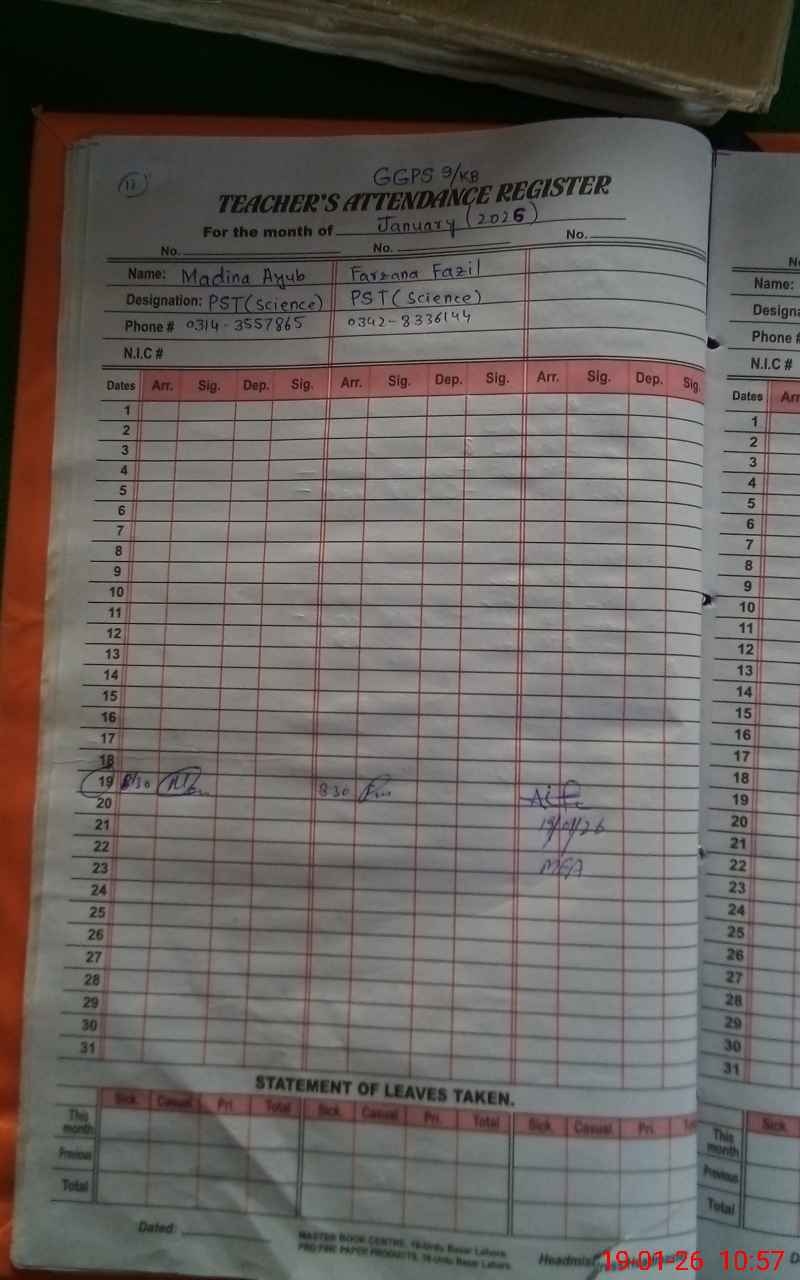 11
GGPS 9/KB
TEACHER'S ATTENDANCE REGISTER
For the month of January (2026)
No. No. No.
Name: Madina Ayub Farzana Fazil
Designation: PST (Science) PST (Science)
Phone # 0314-3557865 0342-8336144
N.I.C #
Dates Arr. Sig. Dep. Sig. Arr. Sig. Dep. Sig. Arr. Sig. Dep. Sig.
1
2
3
4
5
6
7
8
9
10
11
12
13
14
15
16
17
18
19 8/30 830
20
21 19/01/26
22
23 MEA
24
25
26
27
28
29
30
31
STATEMENT OF LEAVES TAKEN.
Sick. Casual Pri. Total Sick. Casual Pri. Total Sick. Casual Pri.
This month
Previous
Total
Dated:
MASTER BOOK CENTRE, 16-Urdu Bazar Lahore.
PRO FINE PAPER PRODUCTS, 16-Urdu Bazar Lahore.
No
Name:
Designa
Phone #
N.I.C #
Dates Arr
1
2
3
4
5
6
7
8
9
10
11
12
13
14
15
16
17
18
19
20
21
22
23
24
25
26
27
28
29
30
31
Sick.
This month
Previous
Total
D
19-01-26 10:57